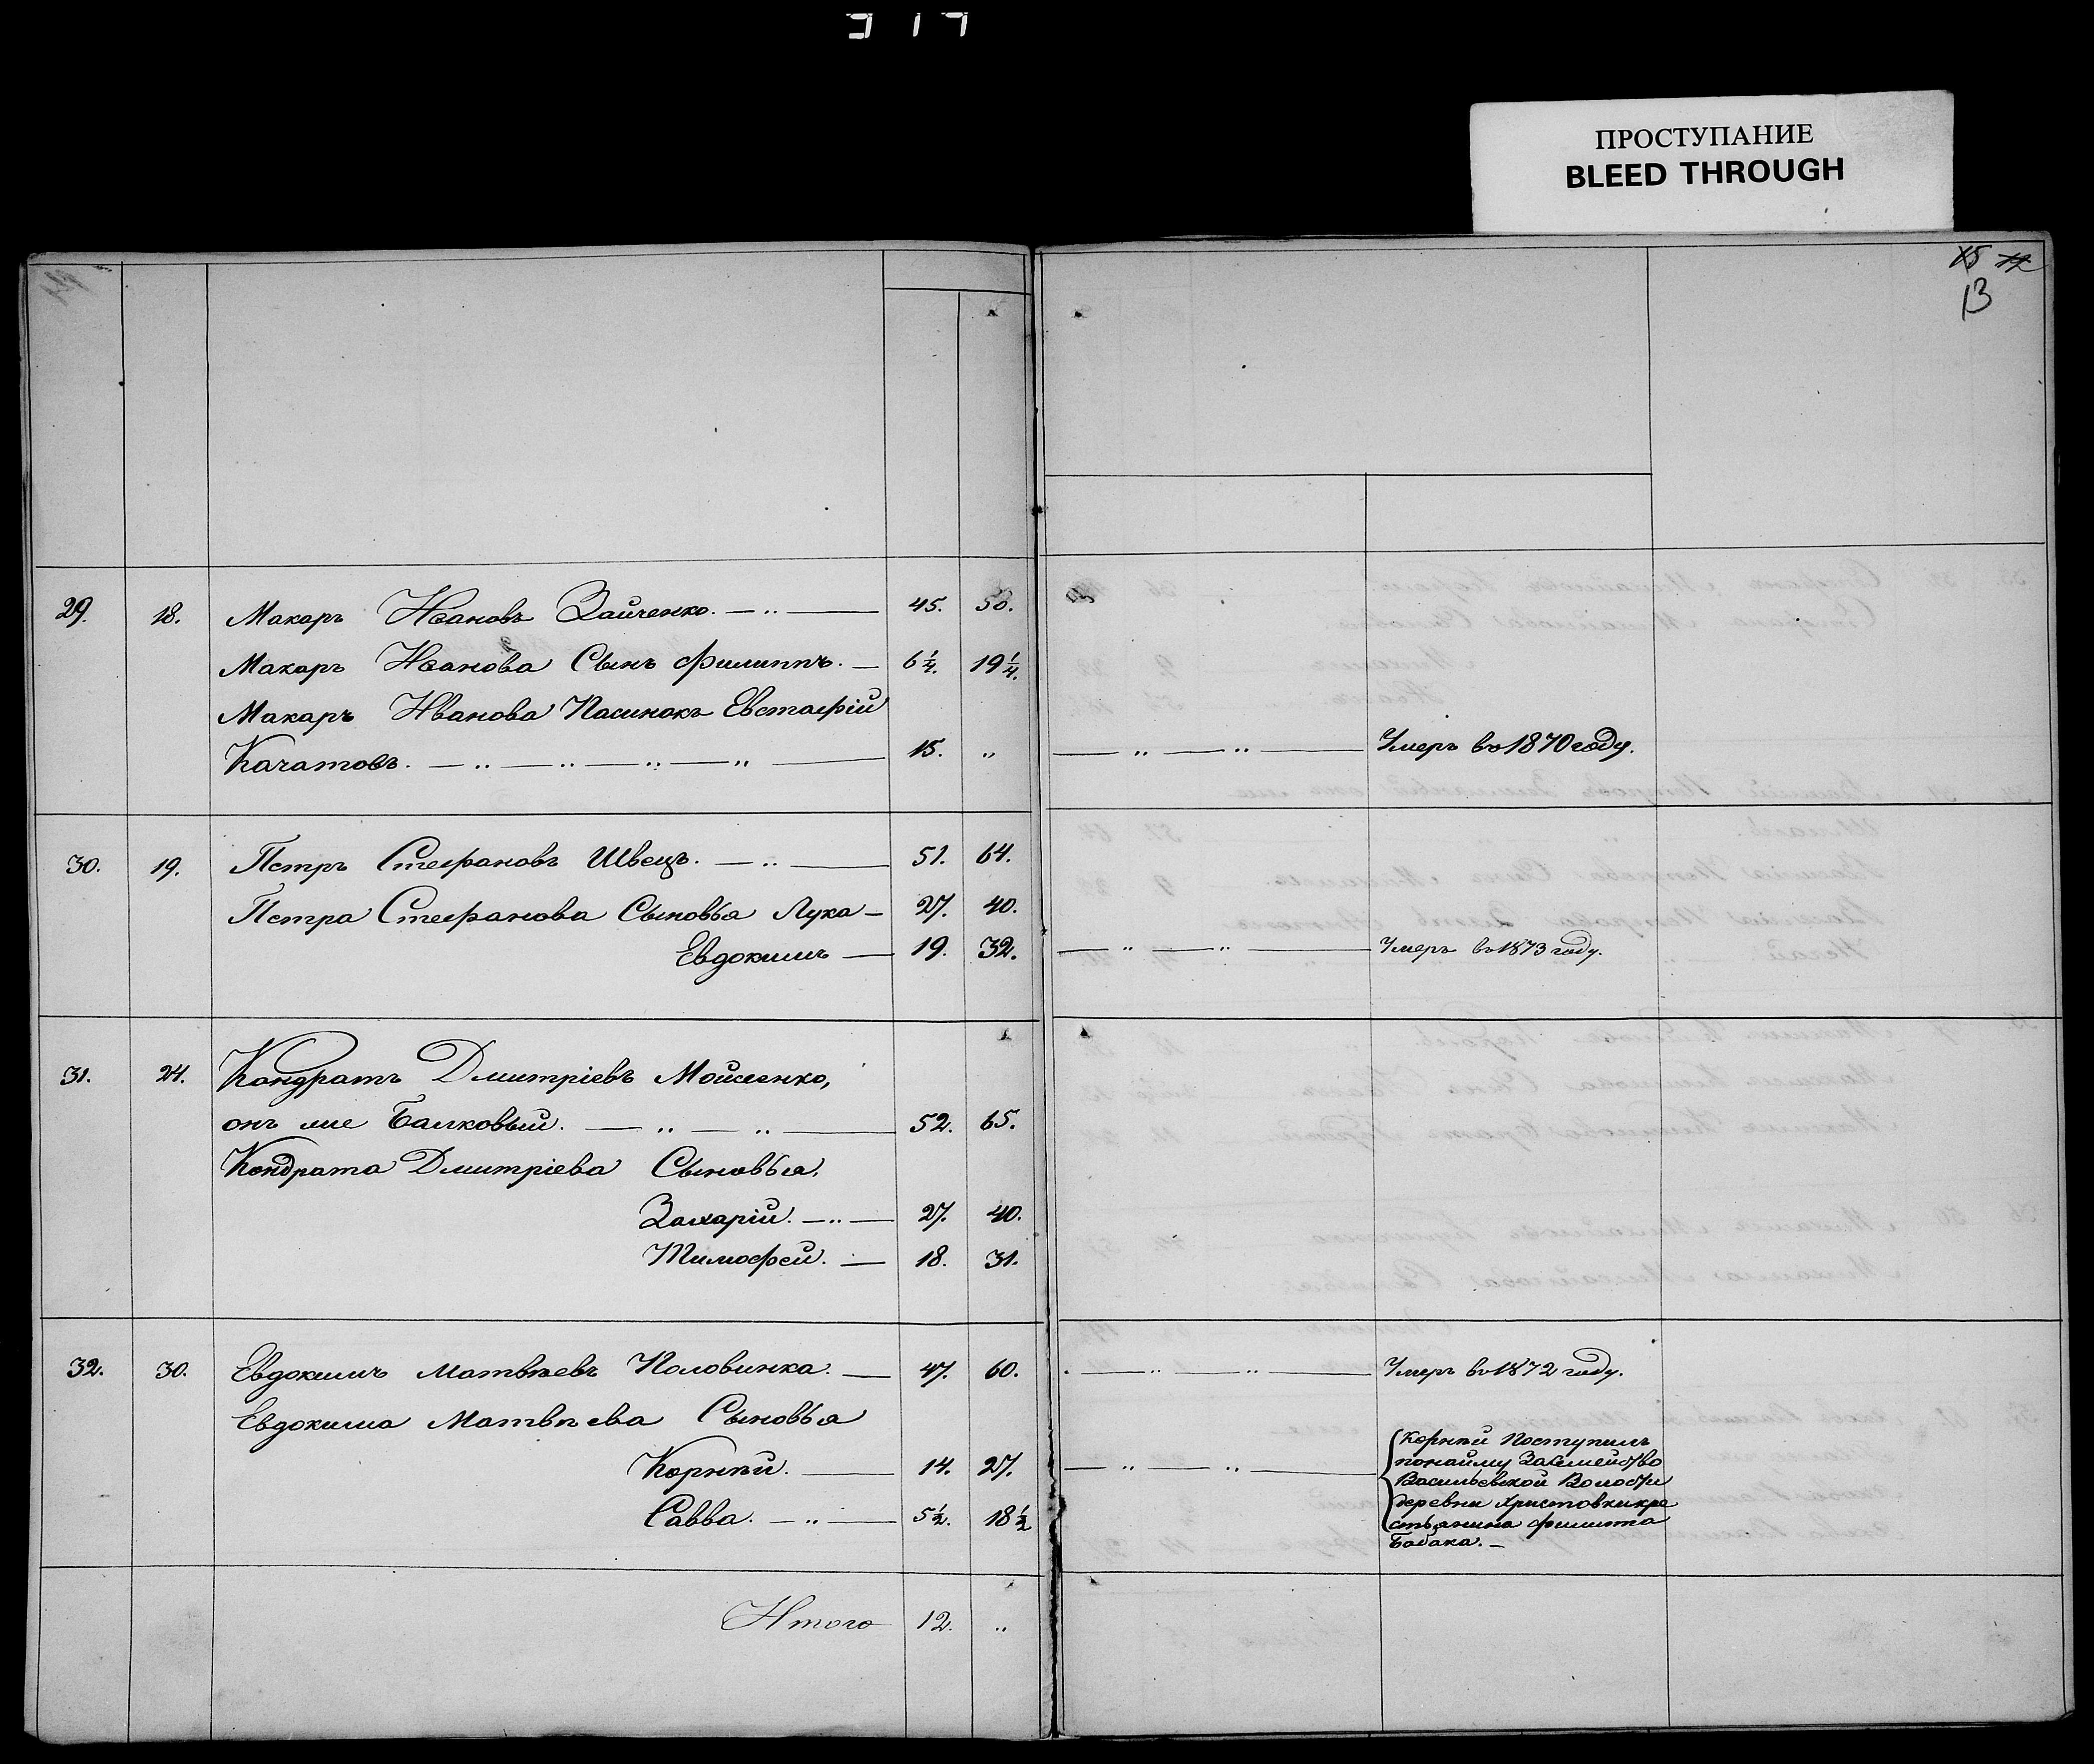 317
ПРОСТУПАНИЕ
BLEED THROUGH
15 12
13
29. 18. Макаръ Ивановъ Зайченко. 45. 58.
Макаръ Иванова Сынъ Филиппъ. 6¼. 19¼.
Макаръ Иванова Пасинокъ Евстафій
Качатовъ. 15. „ Умеръ въ 1870 году.
30. 19. Петръ Стефановъ Швецъ. 51. 64.
Петра Стефанова Сыновья Лука 27. 40.
Евдокимъ 19. 32. Умеръ въ 1873 году.
31. 24. Кондратъ Дмитріевъ Мойсеенко,
онъ же Балковый. 52. 65.
Кондрата Дмитріева Сыновья.
Захарій. 27. 40.
Тимофей. 18. 31.
32. 30. Евдокимъ Матвѣевъ Половинка. 47. 60. Умеръ въ 1872 году.
Евдокима Матвѣева Сыновья
Корнѣй. 14. 27.
Савва. 5½. 18½
Корнѣй Поступилъ
понайму За Семейство
Васильевской Волости
деревни Христовки кре
стьянина Филипа
Бабака.
Итого 12. „